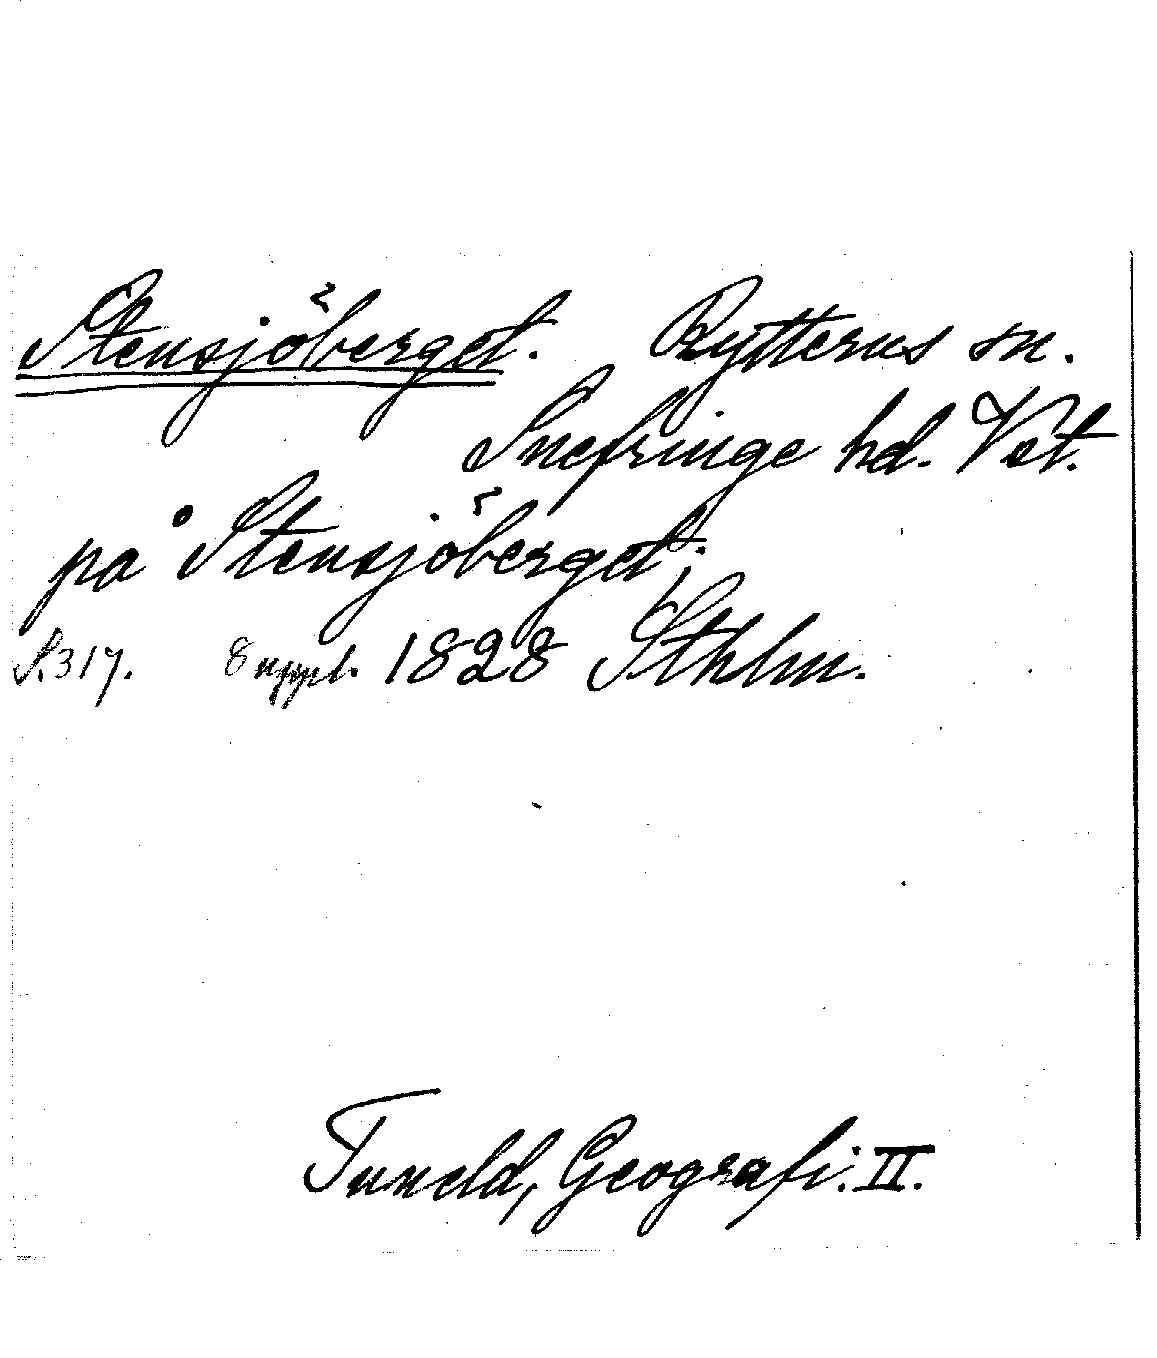 Stensjöberget. Rytterns sn.
Snefringe hd. Vst.
på Stensjöberget;
S. 317. 8 uppl. 1828 Sthlm.
Tuneld, Geografi. II.